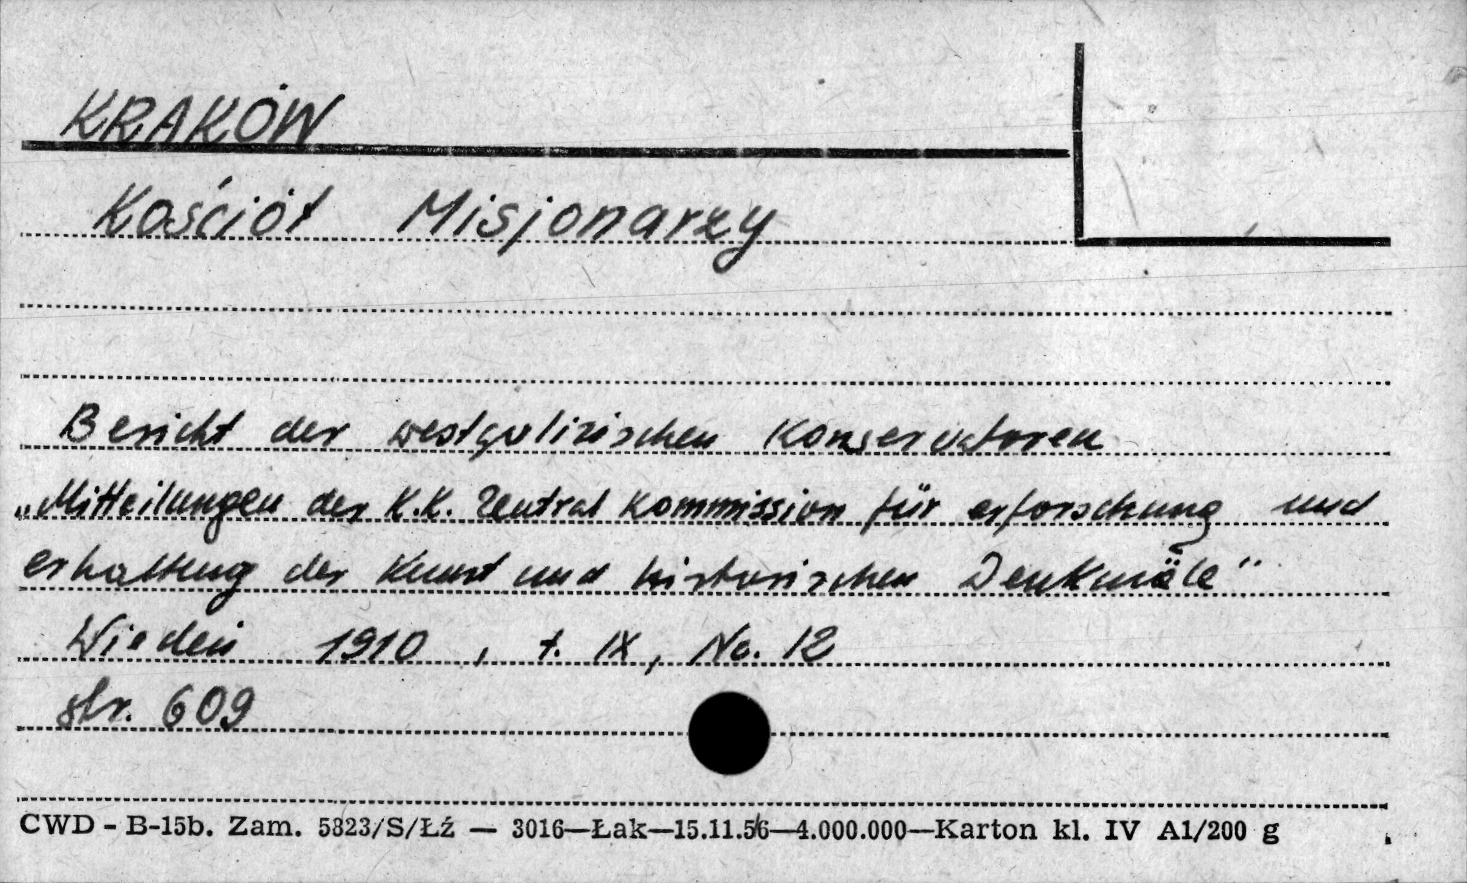 KRAKÓW
Kościół Misjonarzy
Bericht der westgalizischen Konservatoren
„Mitteilungen der K.K. Zentral Kommission für erforschung und
erhaltung der Kunst und historischen Denkmäle"
Wiedeń 1910, t. IX, No. 12
str. 609
CWD - B-15b. Zam. 5823/S/Łź — 3016—Łak—15.11.56—4.000.000—Karton kl. IV A1/200 g